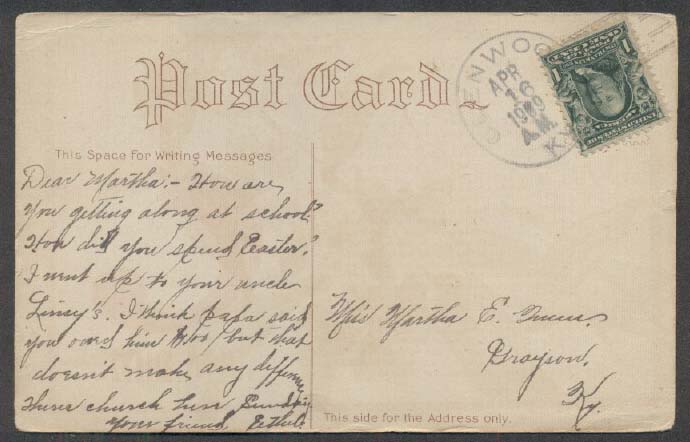 Post Card.
GLENWOOD
APR
16
1909
A.M.
KY.
This Space For Writing Messages
Dear Martha:- How are
you getting along at school?
How did you spend Easter?
I went up to your uncle
Linsy's. I think papa said
you owed him $.00/ but that
doesn't make any difference
church here Sunday
your friend Ethel
Miss Martha E.
Grayson.
Ky.
This side for the Address only.